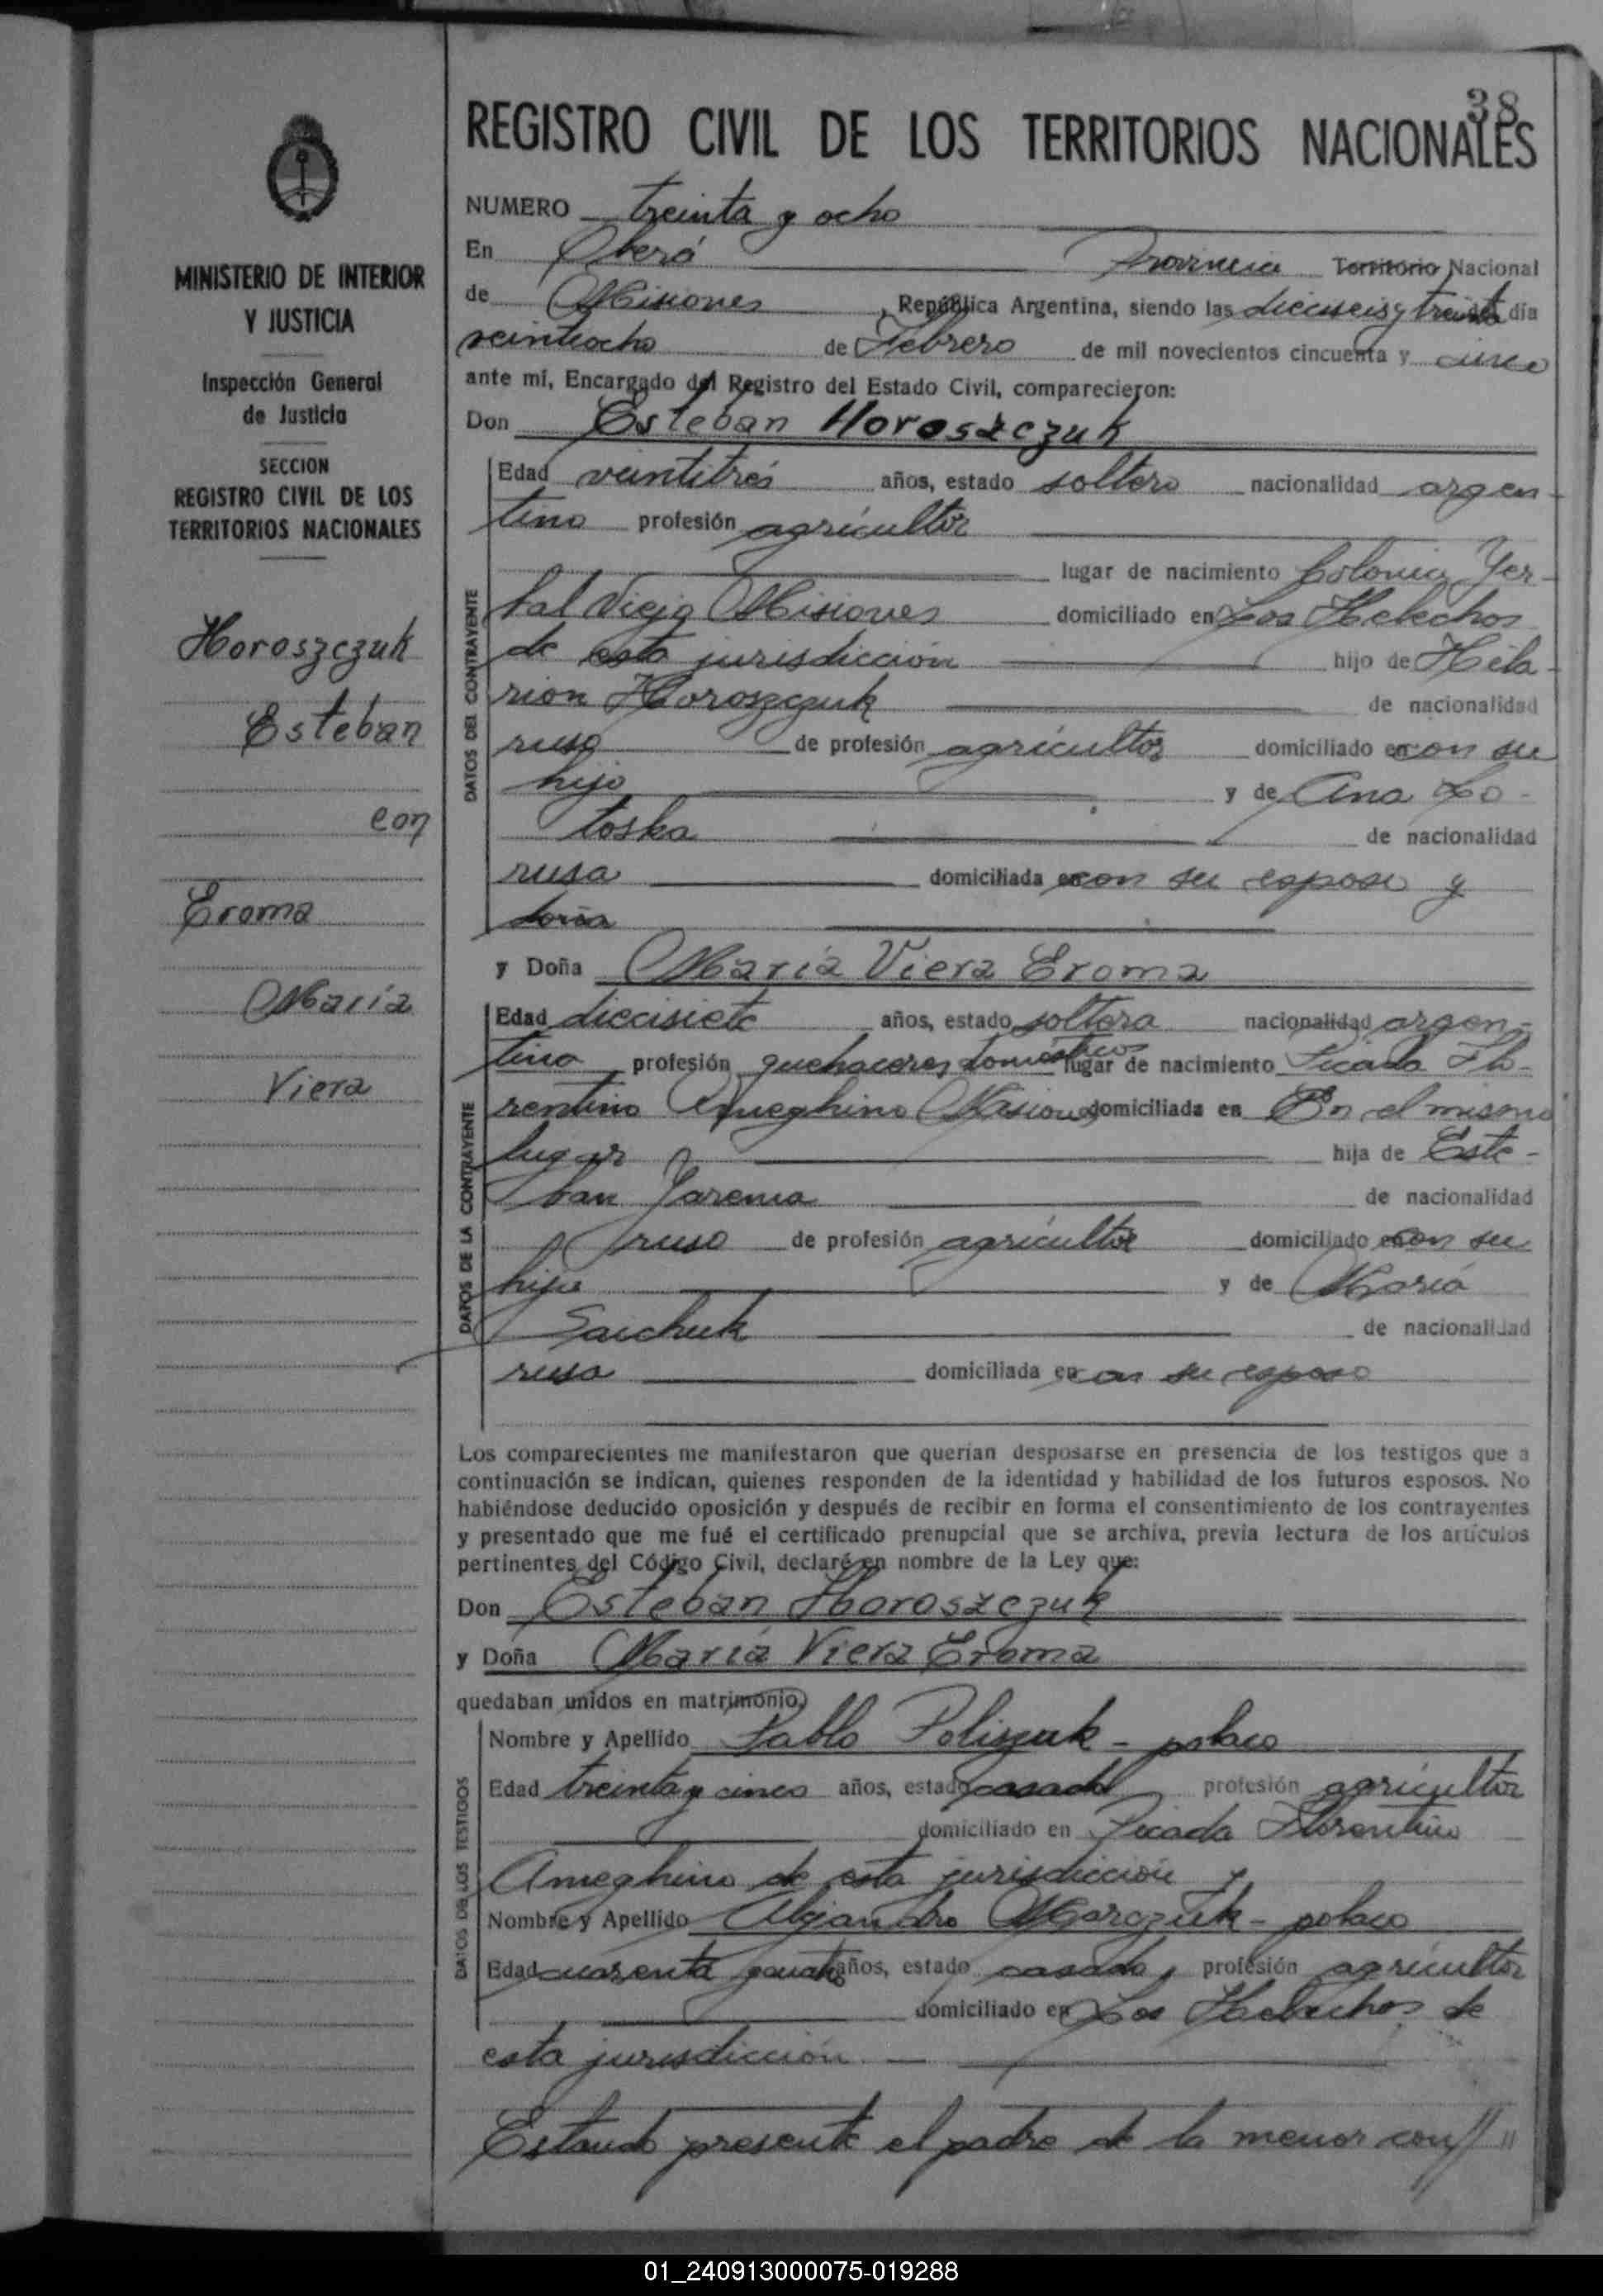 38
REGISTRO CIVIL DE LOS TERRITORIOS NACIONALES
MINISTERIO DE INTERIOR
Y JUSTICIA
Inspección General
de Justicia
SECCION
REGISTRO CIVIL DE LOS
TERRITORIOS NACIONALES
Horoszczuk
Esteban
con
Eroma
María
Viera
NUMERO treinta y ocho
En Oberá Provincia Territorio Nacional
de Misiones, República Argentina, siendo las dieciseis y treinta día
veintiocho de Febrero de mil novecientos cincuenta y cinco
ante mí, Encargado del Registro del Estado Civil, comparecieron:
Don Esteban Horoszczuk
DATOS DEL CONTRAYENTE
Edad veintitrés años, estado soltero nacionalidad argen-
tino profesión agricultor
lugar de nacimiento Colonia Yer-
bal Viejo Misiones domiciliado en Los Helechos
de esta jurisdicción hijo de Hila-
rion Horoszczuk de nacionalidad
ruso de profesión agricultor domiciliado en con su
hijo y de Ana Lo-
toska de nacionalidad
rusa domiciliada en con su esposo y
y Doña María Viera Eroma
DATOS DE LA CONTRAYENTE
Edad diecisiete años, estado soltera nacionalidad argen-
tina profesión quehaceres domésticos lugar de nacimiento Picada Flo-
rentino Ameghino Misiones domiciliada en En el mismo
lugar hija de Este-
ban Jarema de nacionalidad
ruso de profesión agricultor domiciliado en con su
hija y de María
Saichuk de nacionalidad
rusa domiciliada en con su esposo
Los comparecientes me manifestaron que querían desposarse en presencia de los testigos que a
continuación se indican, quienes responden de la identidad y habilidad de los futuros esposos. No
habiéndose deducido oposición y después de recibir en forma el consentimiento de los contrayentes
y presentado que me fué el certificado prenupcial que se archiva, previa lectura de los artículos
pertinentes del Código Civil, declaré en nombre de la Ley que:
Don Esteban Horoszczuk
y Doña María Viera Eroma
quedaban unidos en matrimonio,
DATOS DE LOS TESTIGOS
Nombre y Apellido Pablo Poliszuk - polaco
Edad treinta y cinco años, estado casado profesión agricultor
domiciliado en Picada Florentino
Ameghino de esta jurisdicción y
Nombre y Apellido Alejandro Marczuk - polaco
Edad cuarenta y cuatro años, estado casado, profesión agricultor
domiciliado en Los Helechos de
esta jurisdicción
Estando presente el padre de la menor con//
01_240913000075-019288